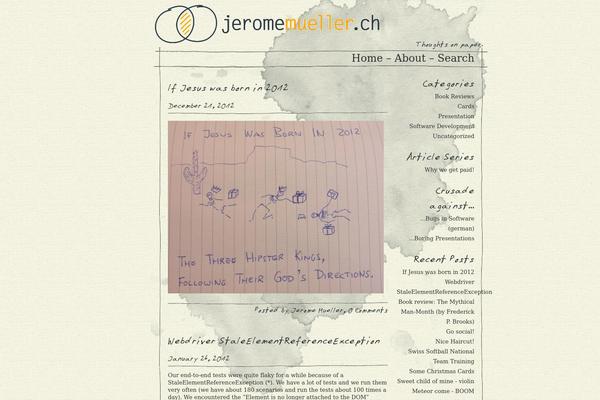 jeromemueller.ch
Thoughts on paper.
Home – About – Search
If Jesus was born in 2012
December 21, 2012
IF JESUS WAS BORN IN 2012
THE THREE HIPSTER KINGS,
FOLLOWING THEIR GOD'S DIRECTIONS.
Posted by Jerome Mueller, 0 Comments
Webdriver StaleElementReferenceException
January 26, 2012
Our end-to-end tests were quite flaky for a while because of a
StaleElementReferenceException (*). We have a lot of tests and we run them
very often (we have about 180 scenarios and run the tests about 100 times a
day). We encountered the "Element is no longer attached to the DOM"
Categories
Book Reviews
Cards
Presentation
Software Development
Uncategorized
Article Series
Why we get paid!
Crusade
against...
...Bugs in Software
(german)
...Boring Presentations
Recent Posts
If Jesus was born in 2012
Webdriver
StaleElementReferenceException
Book review: The Mythical
Man-Month (by Frederick
P. Brooks)
Go social!
Nice Haircut!
Swiss Softball National
Team Training
Some Christmas Cards
Sweet child of mine - violin
Meteor come - BOOM